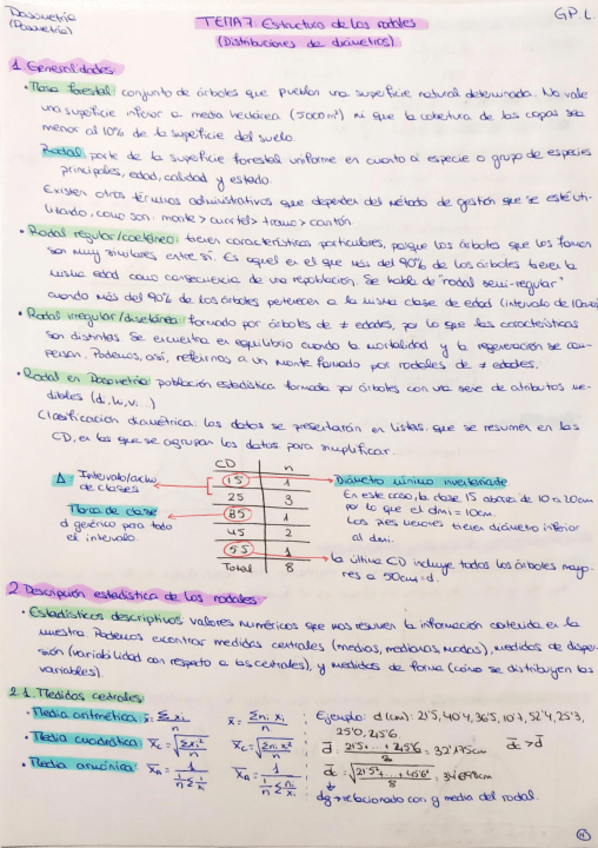 Dasometría
(Dasometría)
TEMA 7: Estructura de los rodales
(Distribuciones de diámetros)
G.P.L.
1. Generalidades:
• Masa forestal: conjunto de árboles que pueblan una superficie natural determinada. No vale
una superficie inferior a media hectárea (5000m²) ni que la cobertura de las copas sea
menor al 10% de la superficie del suelo.
Rodal: parte de la superficie forestal uniforme en cuanto a especie o grupo de especies
principales, edad, calidad y estado.
Existen otros términos administrativos que dependen del método de gestión que se esté uti-
lizando, como son: monte > cuartel > tramo > cantón.
• Rodal regular/coetáneo: tienen características particulares, porque los árboles que los forman
son muy similares entre sí. Es aquel en el que más del 90% de los árboles tienen la
misma edad como consecuencia de una repoblación. Se habla de "rodal semi-regular"
cuando más del 90% de los árboles pertenecen a la misma clase de edad (intervalo de
• Rodal irregular/disetáneo: formado por árboles de ≠ edades, por lo que las características
son distintas. Se encuentra en equilibrio cuando la mortalidad y la regeneración se com-
pensan. Podemos, así, referirnos a un monte formado por rodales de ≠ edades.
• Rodal en Dasometría: población estadística formada por árboles con una serie de atributos me-
dibles (d, h, v...)
Clasificación diamétrica: los datos se presentarán en listas que se resumen en las
CD, en las que se agrupan los datos para simplificar.
CD n
15 1
25 3
35 1
45 2
55 1
Total 8
Δ Intervalo/
de clases
Marca de clase
d genérico para todo
el intervalo.
Diámetro mínimo inventariante
En este caso, la clase 15 abarca de 10 a 20cm
por lo que el dmi = 10cm.
Los pies menores tienen diámetro inferior
al dmi.
La última CD incluye todos los árboles mayo-
res a 50cm d.
2. Descripción estadística de los rodales
• Estadísticos descriptivos: valores numéricos que nos resumen la información contenida en la
muestra. Podemos encontrar medidas centrales (medias, medianas, modas), medidas de disper-
sión (variabilidad con respecto a las centrales), y medidas de forma (cómo se distribuyen las
variables).
2.1. Medidas centrales:
• Media aritmética: x̄ = Σxi / n x̄ = Σni xi / n
• Media cuadrática: x̄c = √(Σxi² / n) x̄c = √(Σni xi² / n)
• Media armónica: x̄A = 1 / (1/n Σ 1/xi) x̄A = 1 / (1/n Σ ni/xi)
Ejemplo: d(cm): 21'5, 40'4, 36'5, 10'7, 52'4, 25'3,
25'0, 45'6.
d̄ = (21'5 + ... + 45'6) / 8 = 32'175cm d̄c > d̄
d̄c = √((21'5² + ... + 45'6²) / 8) = 34'698cm
dg → relacionado con g media del rodal.